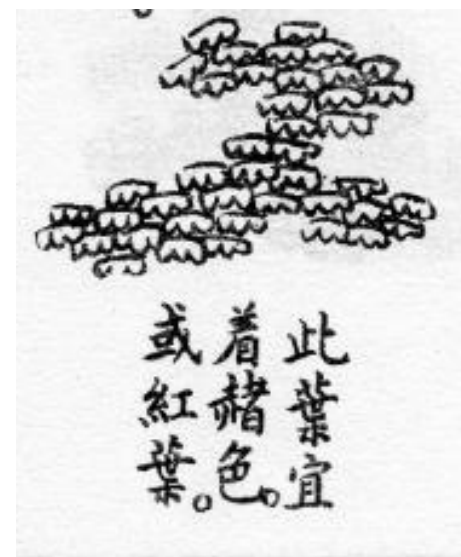 此葉宜
着赭色。
或紅葉。